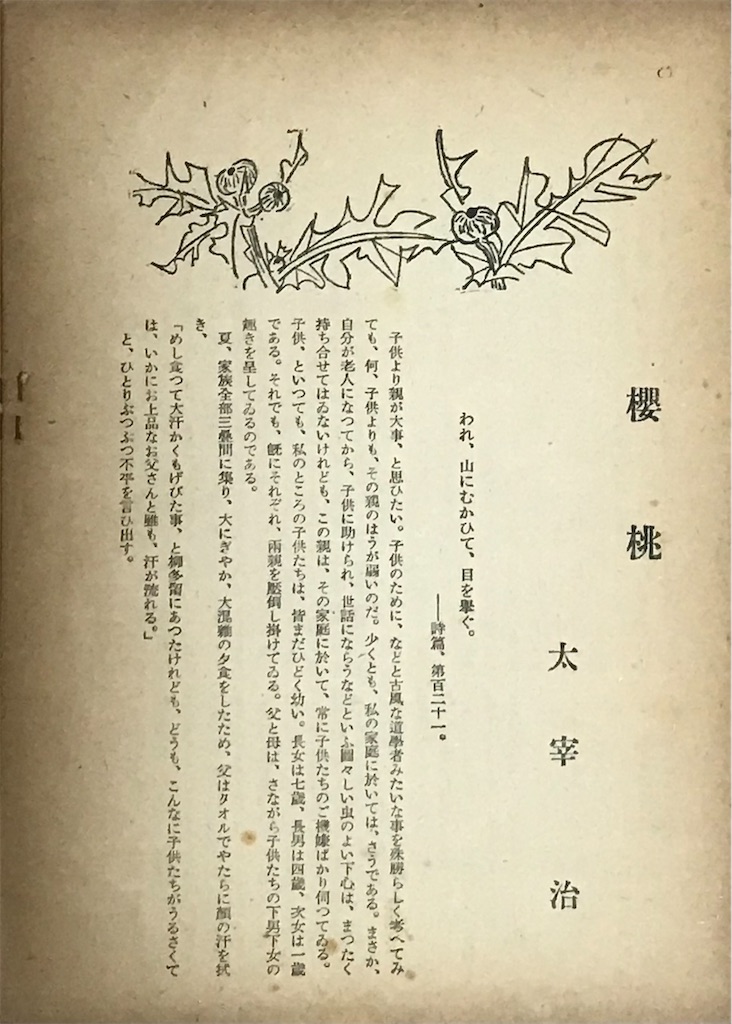 櫻桃
太宰治
われ、山にむかひて、目を擧ぐ。
――詩篇、第百二十一。
子供より親が大事、と思ひたい。子供のために、などと古風な道學者みたいな事を殊勝らしく考へてみ
ても、何、子供よりも、その親のはうが弱いのだ。少くとも、私の家庭に於いては、さうである。まさか、
自分が老人になつてから、子供に助けられ、世話にならうなどといふ圖々しい虫のよい下心は、まつたく
持ち合せてはゐないけれども、この親は、その家庭に於いて、常に子供たちのご機嫌ばかり伺つてゐる。
子供、といつても、私のところの子供たちは、皆まだひどく幼い。長女は七歳、長男は四歳、次女は一歳
である。それでも、既にそれぞれ、兩親を壓倒し掛けてゐる。父と母は、さながら子供たちの下男下女の
趣きを呈してゐるのである。
夏、家族全部三疊間に集り、大にぎやか、大混雜の夕食をしたため、父はタオルでやたらに顏の汗を拭
き、
「めし食つて大汗かくもげびた事、と柳多留にあつたけれども、どうも、こんなに子供たちがうるさくて
は、いかにお上品なお父さんと雖も、汗が流れる。」
と、ひとりぶつぶつ不平を言ひ出す。